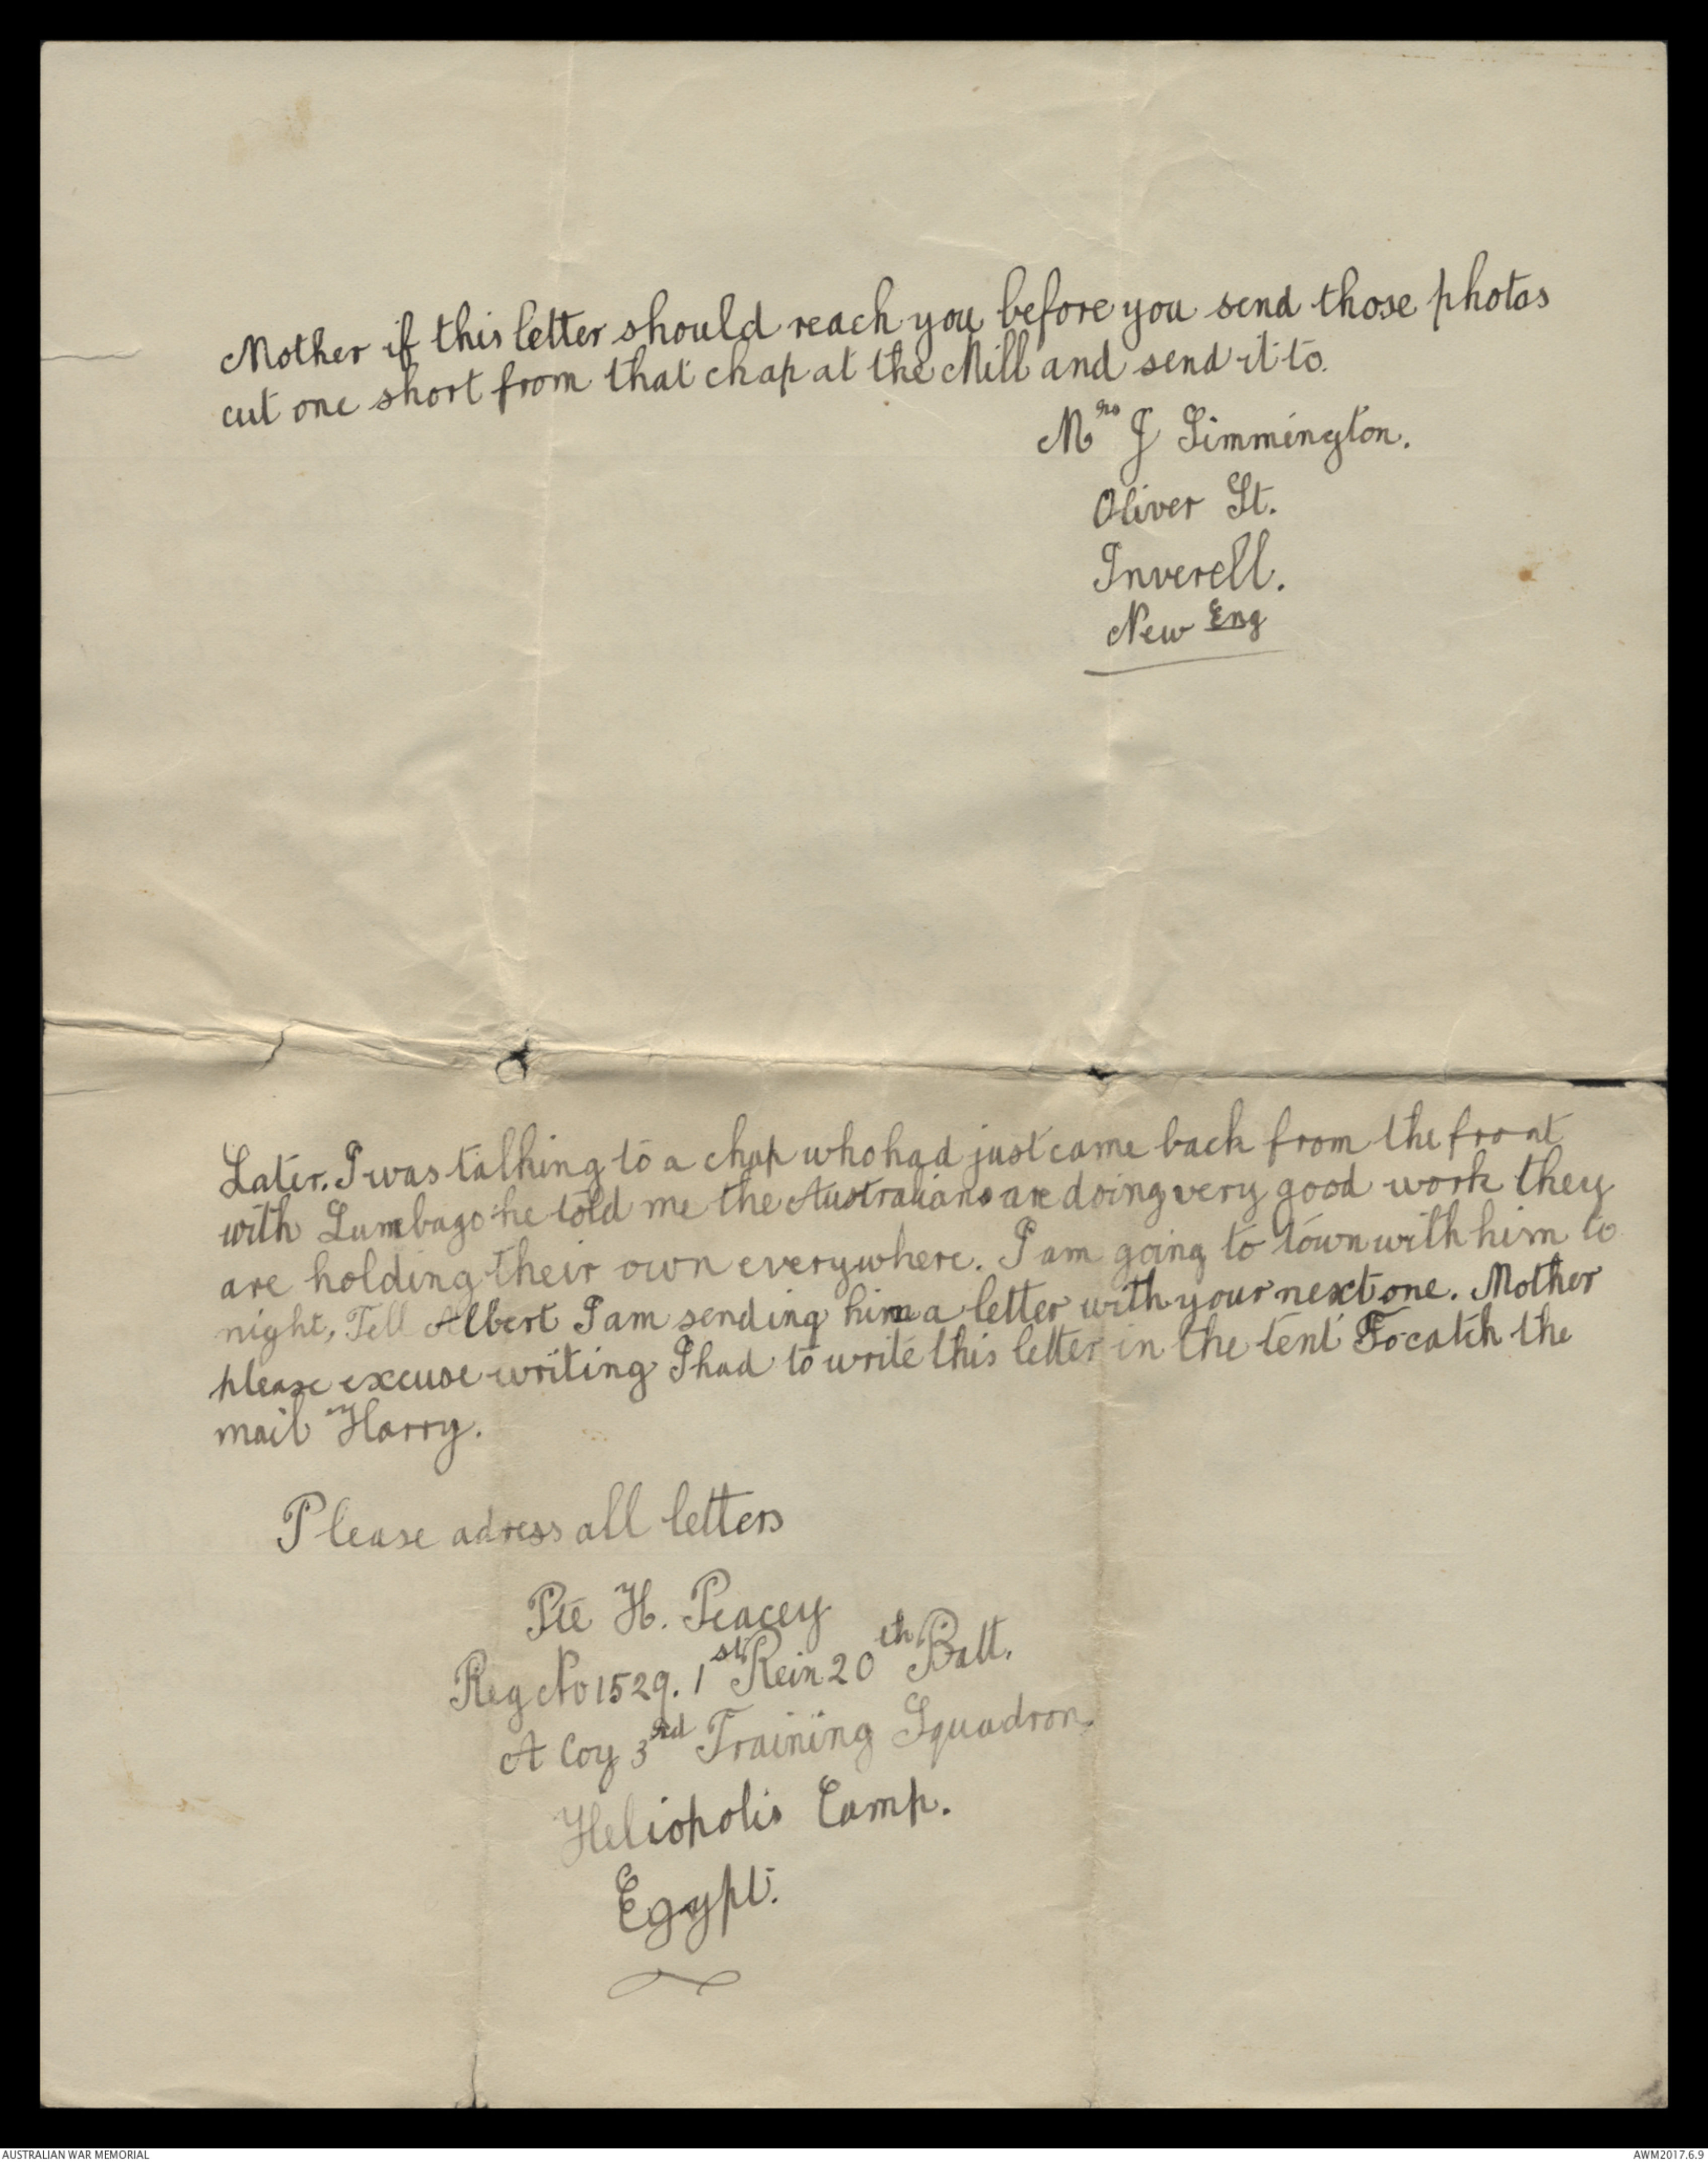 Mother if this letter should reach you before you send those photos
cut one short from that chap at the Mill and send it to.
Mrs J Simmington.
Oliver St.
Inverell.
New Eng
Later. I was talking to a chap who had just came back from the front
with Lumbago he told me the Australians are doing very good work they
are holding their own everywhere. I am going to town with him to
night, Tell Albert I am sending him a letter with your next one. Mother
please excuse writing I had to write this letter in the tent To catch the
mail Harry.
Please adress all letters
Pte H. Peacey
Reg No 1529. 1st Rein 20th Batt.
A Coy 3rd Training Squadron.
Heliopolis Camp.
Egypt.
AUSTRALIAN WAR MEMORIAL
AWM2017.6.9